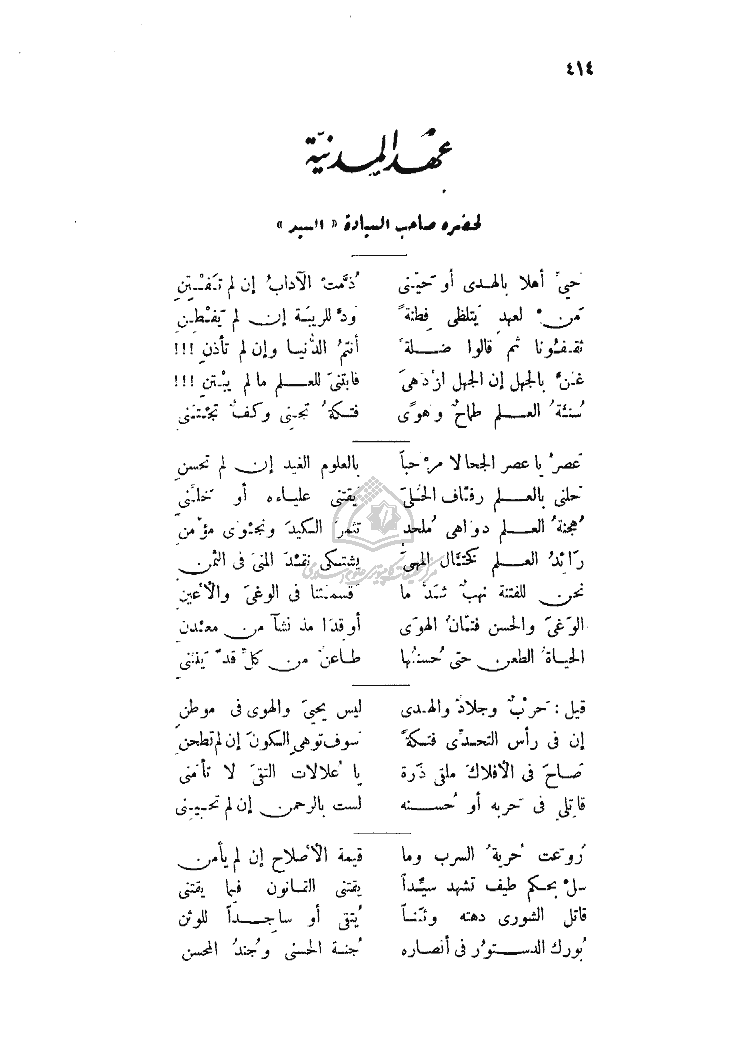 ٤١٤
عهد المدنية
لحضرة صاحب السيادة « السيد »
حيّ أهلا بالهدى أو حيّني ذمّت الآداب إن لم تفتن
من لعهد يتلظى فطنةً ودّ للريبة إن لم يفطن
ثقفونا ثم قالوا ضلة أنتم الدنيا وإن لم تأذن !!!
غنّ بالجهل إن الجهل ازدهى فابتنى للعلم ما لم يبتن !!!
سنّة العلم طماح وهوًى فتكة تجنى وكف تجتنى
عصر يا عصر الحجا لا مرحبا بالعلوم الغيد إن لم تحسن
حلنى بالعلم رفّاف الحلى يقتنى علياءه أو خلّنى
هجنة العلم دواهى ملحد تنمر الكيد ونجوى مؤمن
رائد العلم كختال المهى يشتكى نقد المنى فى الثمن
نحن للفتنة نهب شد ما قسمتنا فى الوغى والأعين
الوغى والحسن فتّان الهوى أوقدا مذ نشآ من معدن
الحياة الطعن حتى حسنها طاعن من كل قدّ يذنى
قيل : حرب وجلاد والهدى ليس يحيى والهوى فى موطن
إن فى رأس التحدّى فتكةً سوف توهى الكون إن لم تطحن
صاح فى الأفلاك ملقى ذرة يا علالات التقى لا تأمنى
قاتلى فى حربه أو حسنه لست بالرحمن إن لم تحببنى
روعت حرية السرب وما قيمة الأصلاح إن لم يأمن
سل بحكم طيف تشهد سيّداً يقتنى القانون فيما يقتنى
قاتل الشورى دهته وثناً يتقى أو ساجداً للوثن
بورك الدستور فى أنصاره جنة الحسنى وجند المحسن